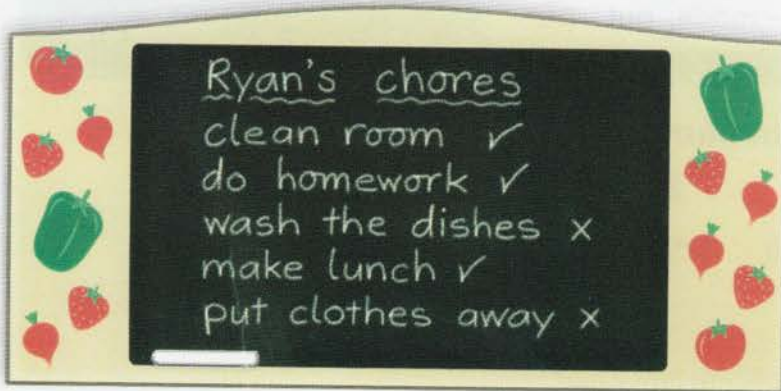 Ryan's chores
clean room ✓
do homework ✓
wash the dishes x
make lunch ✓
put clothes away x